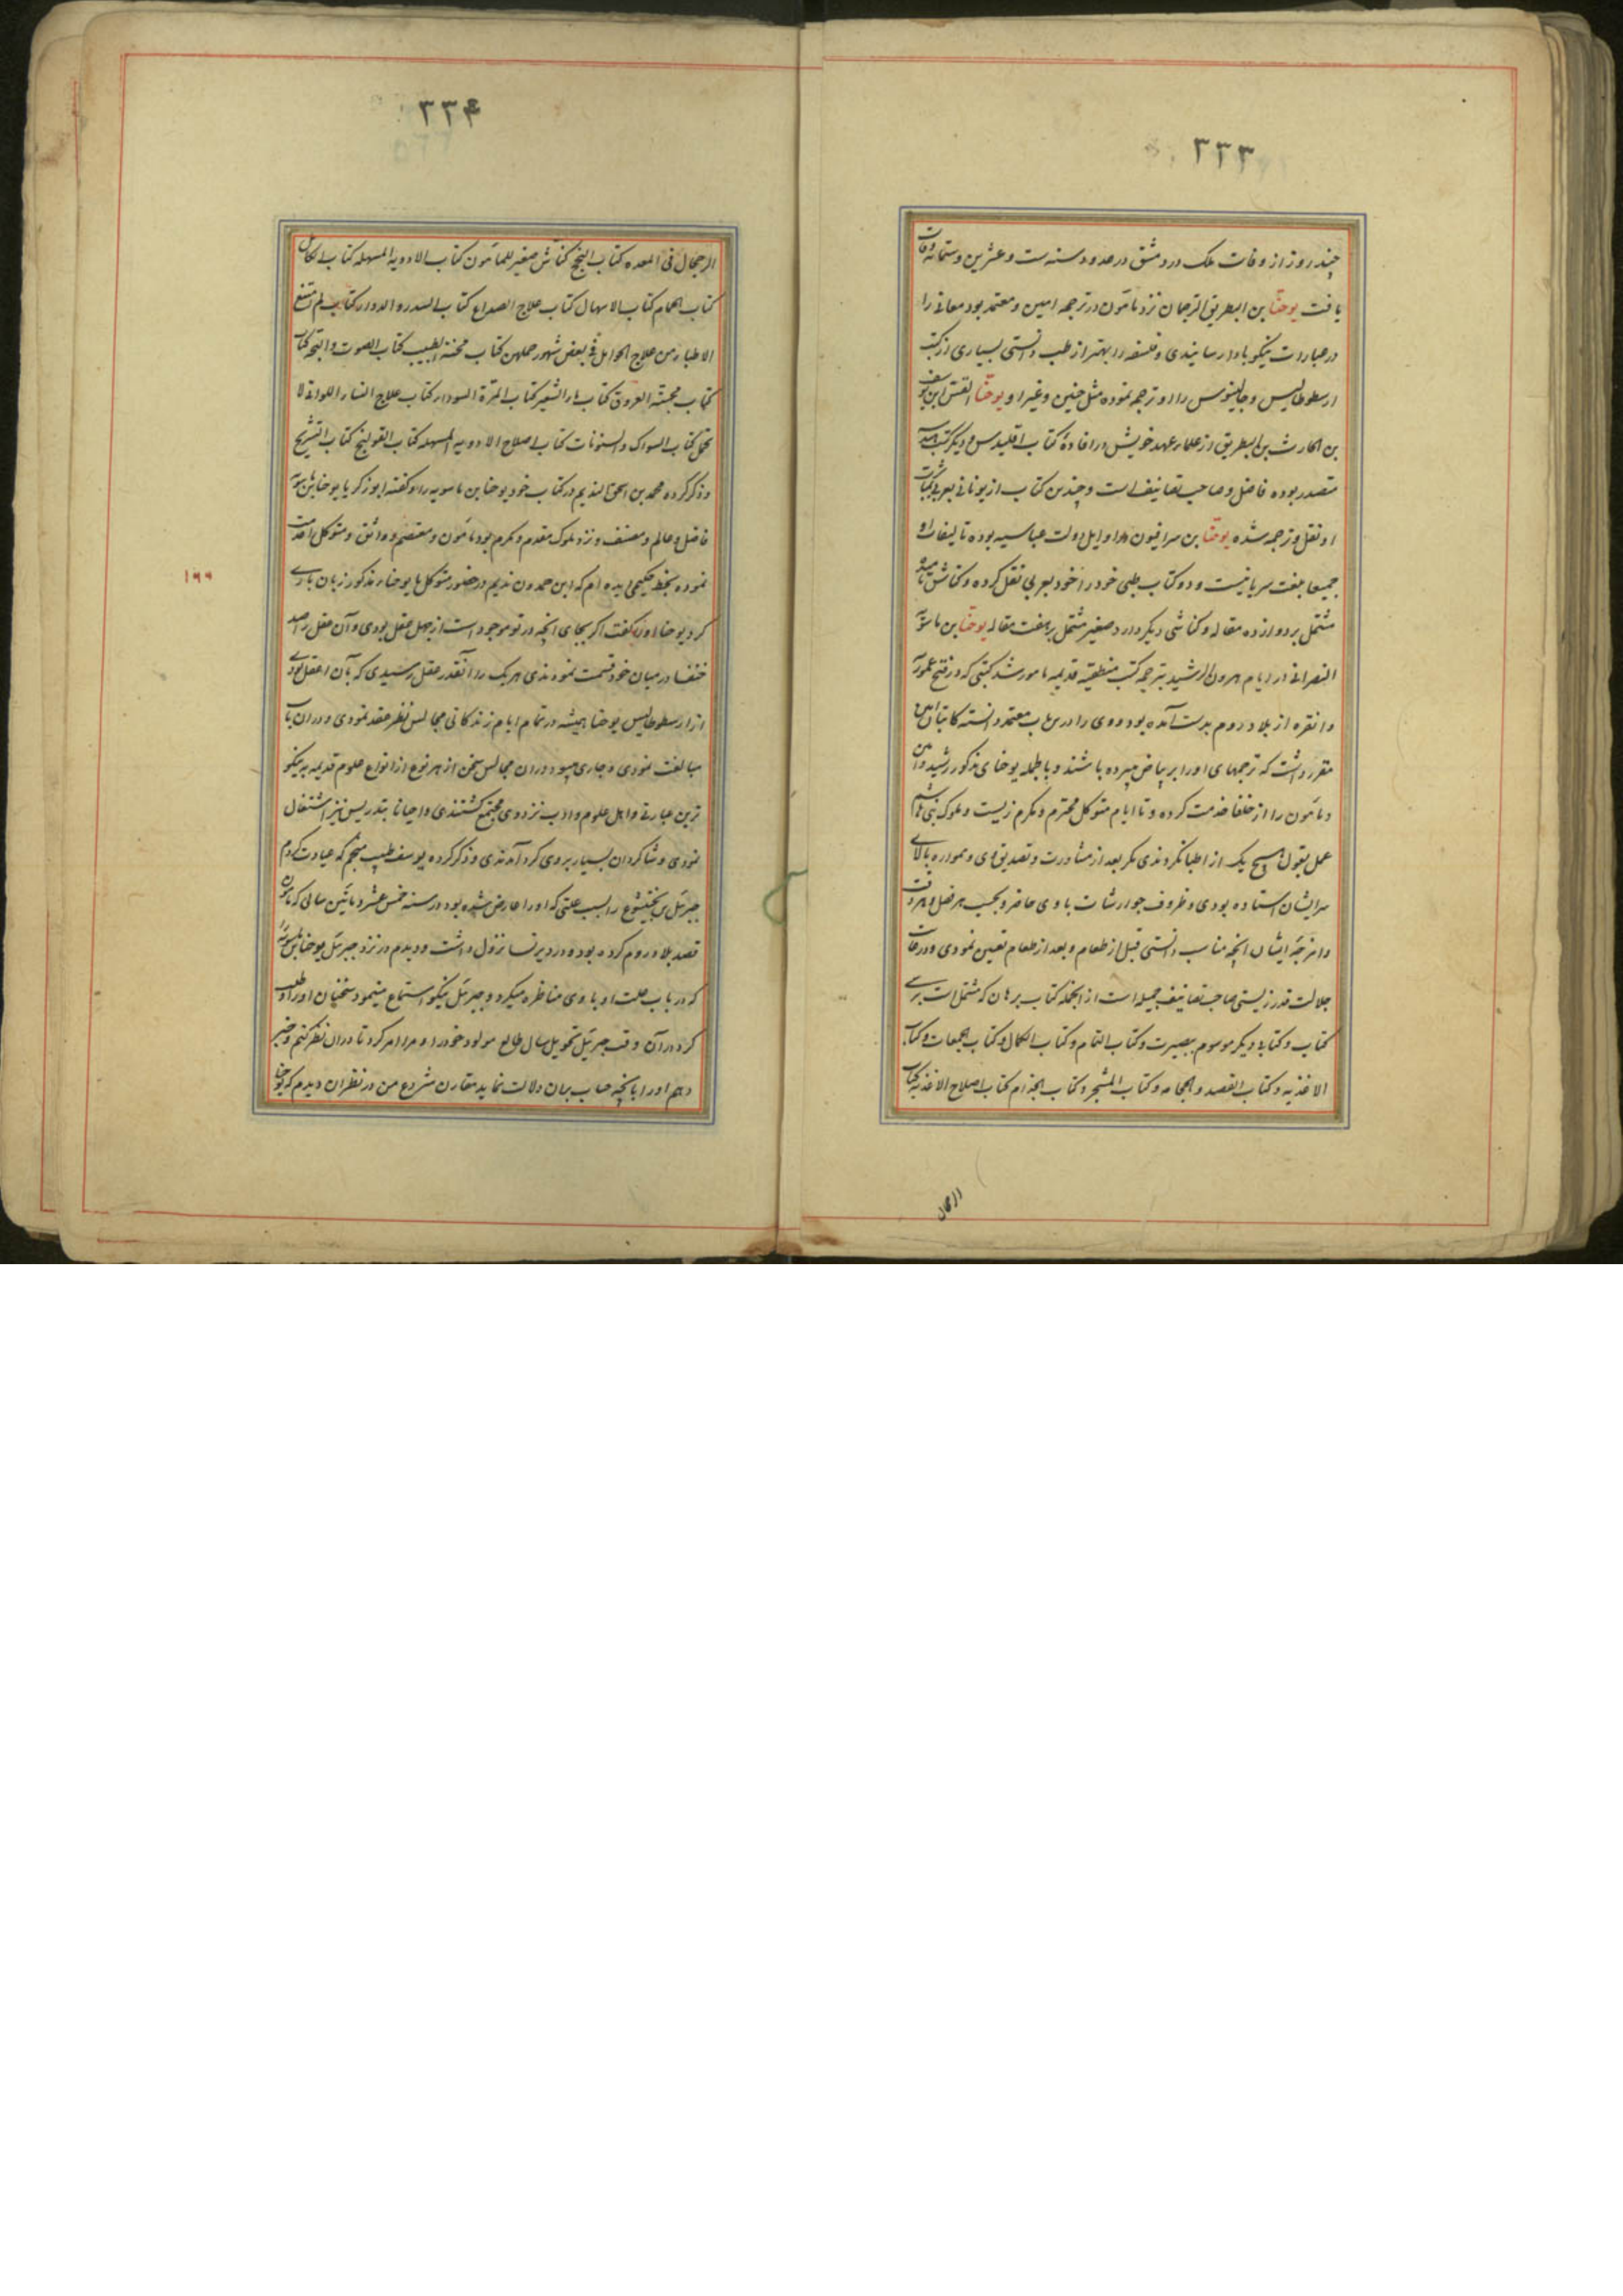 ۳۳۳
چند روز از وفات ملک در دمشق در حدود سنه ست و عشرین و ستمائه وفات
یافت یوحنّا بن البطریق الترجمان نزد مامون در ترجمه امین و معتمد بود معانی را
در عبارات نیکو بادا رسانیدی و فلسفه را بهتر از طب دانستی بسیاری از کتب
ارسطوطالیس و جالینوس را او ترجمه نموده مثل حنین و غیر او یوحنّا القس ابن یوسف
بن الحارث بن البطریق از علماء عهد خویش در افادهٔ کتاب اقلیدس و دیگر کتب هندسه
متصدر بوده فاضل و صاحب تصانیف است و چندین کتاب از یونانی بعربی
او نقل و ترجمه شده یوحنّا بن سرافیون در اوایل دولت عباسیه بوده تالیفات او
جمیعا بلغت سریانیست و دو کتاب طبی خود را خود بعربی نقل کرده و کناش
مشتمل بر دوازده مقاله و کناشی دیگر دارد صغیر مشتمل بر هفت مقاله یوحنّا بن ماسویه
النصرانی در ایام هرون الرشید بترجمه کتب منطقیه قدیمه مامور شد کتبی که در فتح عموریه
و انقره از بلاد روم بدست آمده بود و وی را درین باب معتمد دانسته کاتبان
مقرر داشت که ترجمهای او را بر بیاض میبرده باشند و بالجمله یوحنای مذکور رشید و امین
و مامون را از خلفا خدمت کرده و تا ایام متوکل محترم و مکرم زیست و ملوک بنی هاشم
عمل بقول هیچ یک از اطبا نکردندی مگر بعد از مشاورت و تصدیق وی و همواره بالای
سر ایشان استاده بودی و ظروف جوارشات با وی حاضر و بحسب هر فصل و هر وقت
و امزجهٔ ایشان انچه مناسب دانستی قبل از طعام و بعد از طعام تعیین نمودی و در غایت
جلالت قدر زیستی صاحب تصانیف جمیله است از انجمله کتاب برهان که مشتمل است بر سی
کتاب و کتاب دیگر موسوم ببصیرت و کتاب التمام و کتاب الکمال و کتاب الحمیات و کتاب
الاغذیه و کتاب الفصد و الحجامه و کتاب المشجر و کتاب الجذام کتاب اصلاح الاغذیه کتاب
الرجحان
۳۳۴
الرجحان فی المعده کتاب النجح کناش صغیر للمامون کتاب الادویه المسهله کتاب الکامل
کتاب الحمام کتاب الاسهال کتاب علاج الصداع کتاب السدر و الدوار کتاب لم امتنع
الاطباء من علاج الحوامل فی بعض شهور حملهن کتاب محنة الطبیب کتاب الصوت و البحه کتاب
کتاب مجسة العروق کتاب ماء الشعیر کتاب المرة السوداء کتاب علاج النساء اللواتی لا
تحمل کتاب السواک و السنونات کتاب اصلاح الادویه المسهله کتاب القولنج کتاب التشریح
و ذکر کرده محمد بن اسحق الندیم در کتاب خود یوحنا بن ماسویه را و گفته ابو زکریا یوحنا بن ماسویه
فاضل و عالم و مصنف و نزد ملوک مقدم و مکرم بود مامون و معتصم و واثق و متوکل را خدمت
نموده بخط حکیمی دیده ام که ابن حمدون ندیم در حضور متوکل با یوحناء مذکور زبان بازی
کرد یوحنا او را گفت اگر بجای انچه در تو موجود است از جهل عقل بودی و آن عقل را صد
خنفسا در میان خود قسمت نمودندی هر یک را آنقدر عقل رسیدی که بآن اعقل بودی
از ارسطوطالیس یوحنا همیشه در تمام ایام زندگانی مجالس نظر عقد نمودی و در ان باب
مبالغت نمودی و جاری میبود در ان مجالس سخن از هر نوع از انواع علوم قدیمه به نیکو
ترین عبارتی و اهل علوم و ادب نزد وی مجتمع گشتندی و احیانا بتدریس نیز اشتغال
نمودی و شاگردان بسیار بر وی گرد آمدندی و ذکر کرده یوسف طبیب منجم که عیادت کردم
جبرئیل بن بختیشوع را بسبب علتی که او را عارض شده بود در سنه خمس عشر و مائتین سالی که مامون
قصد بلاد روم کرده بود و در دیر نسا نزول داشت و دیدم در نزد جبرئیل یوحنا بن ماسویه را
که در باب علت او با وی مناظره میکرد و جبرئیل نیکو استماع مینمود سخنان او را و طلب
کرد در آن وقت جبرئیل تحویل سال طالع مولود خود را و مرا امر کرد تا در ان نظر کنم و خبر
دهم او را بانچه حساب بران دلالت نماید مقارن شروع من در نظر ان دیدم که یوحنا
۱۶۶